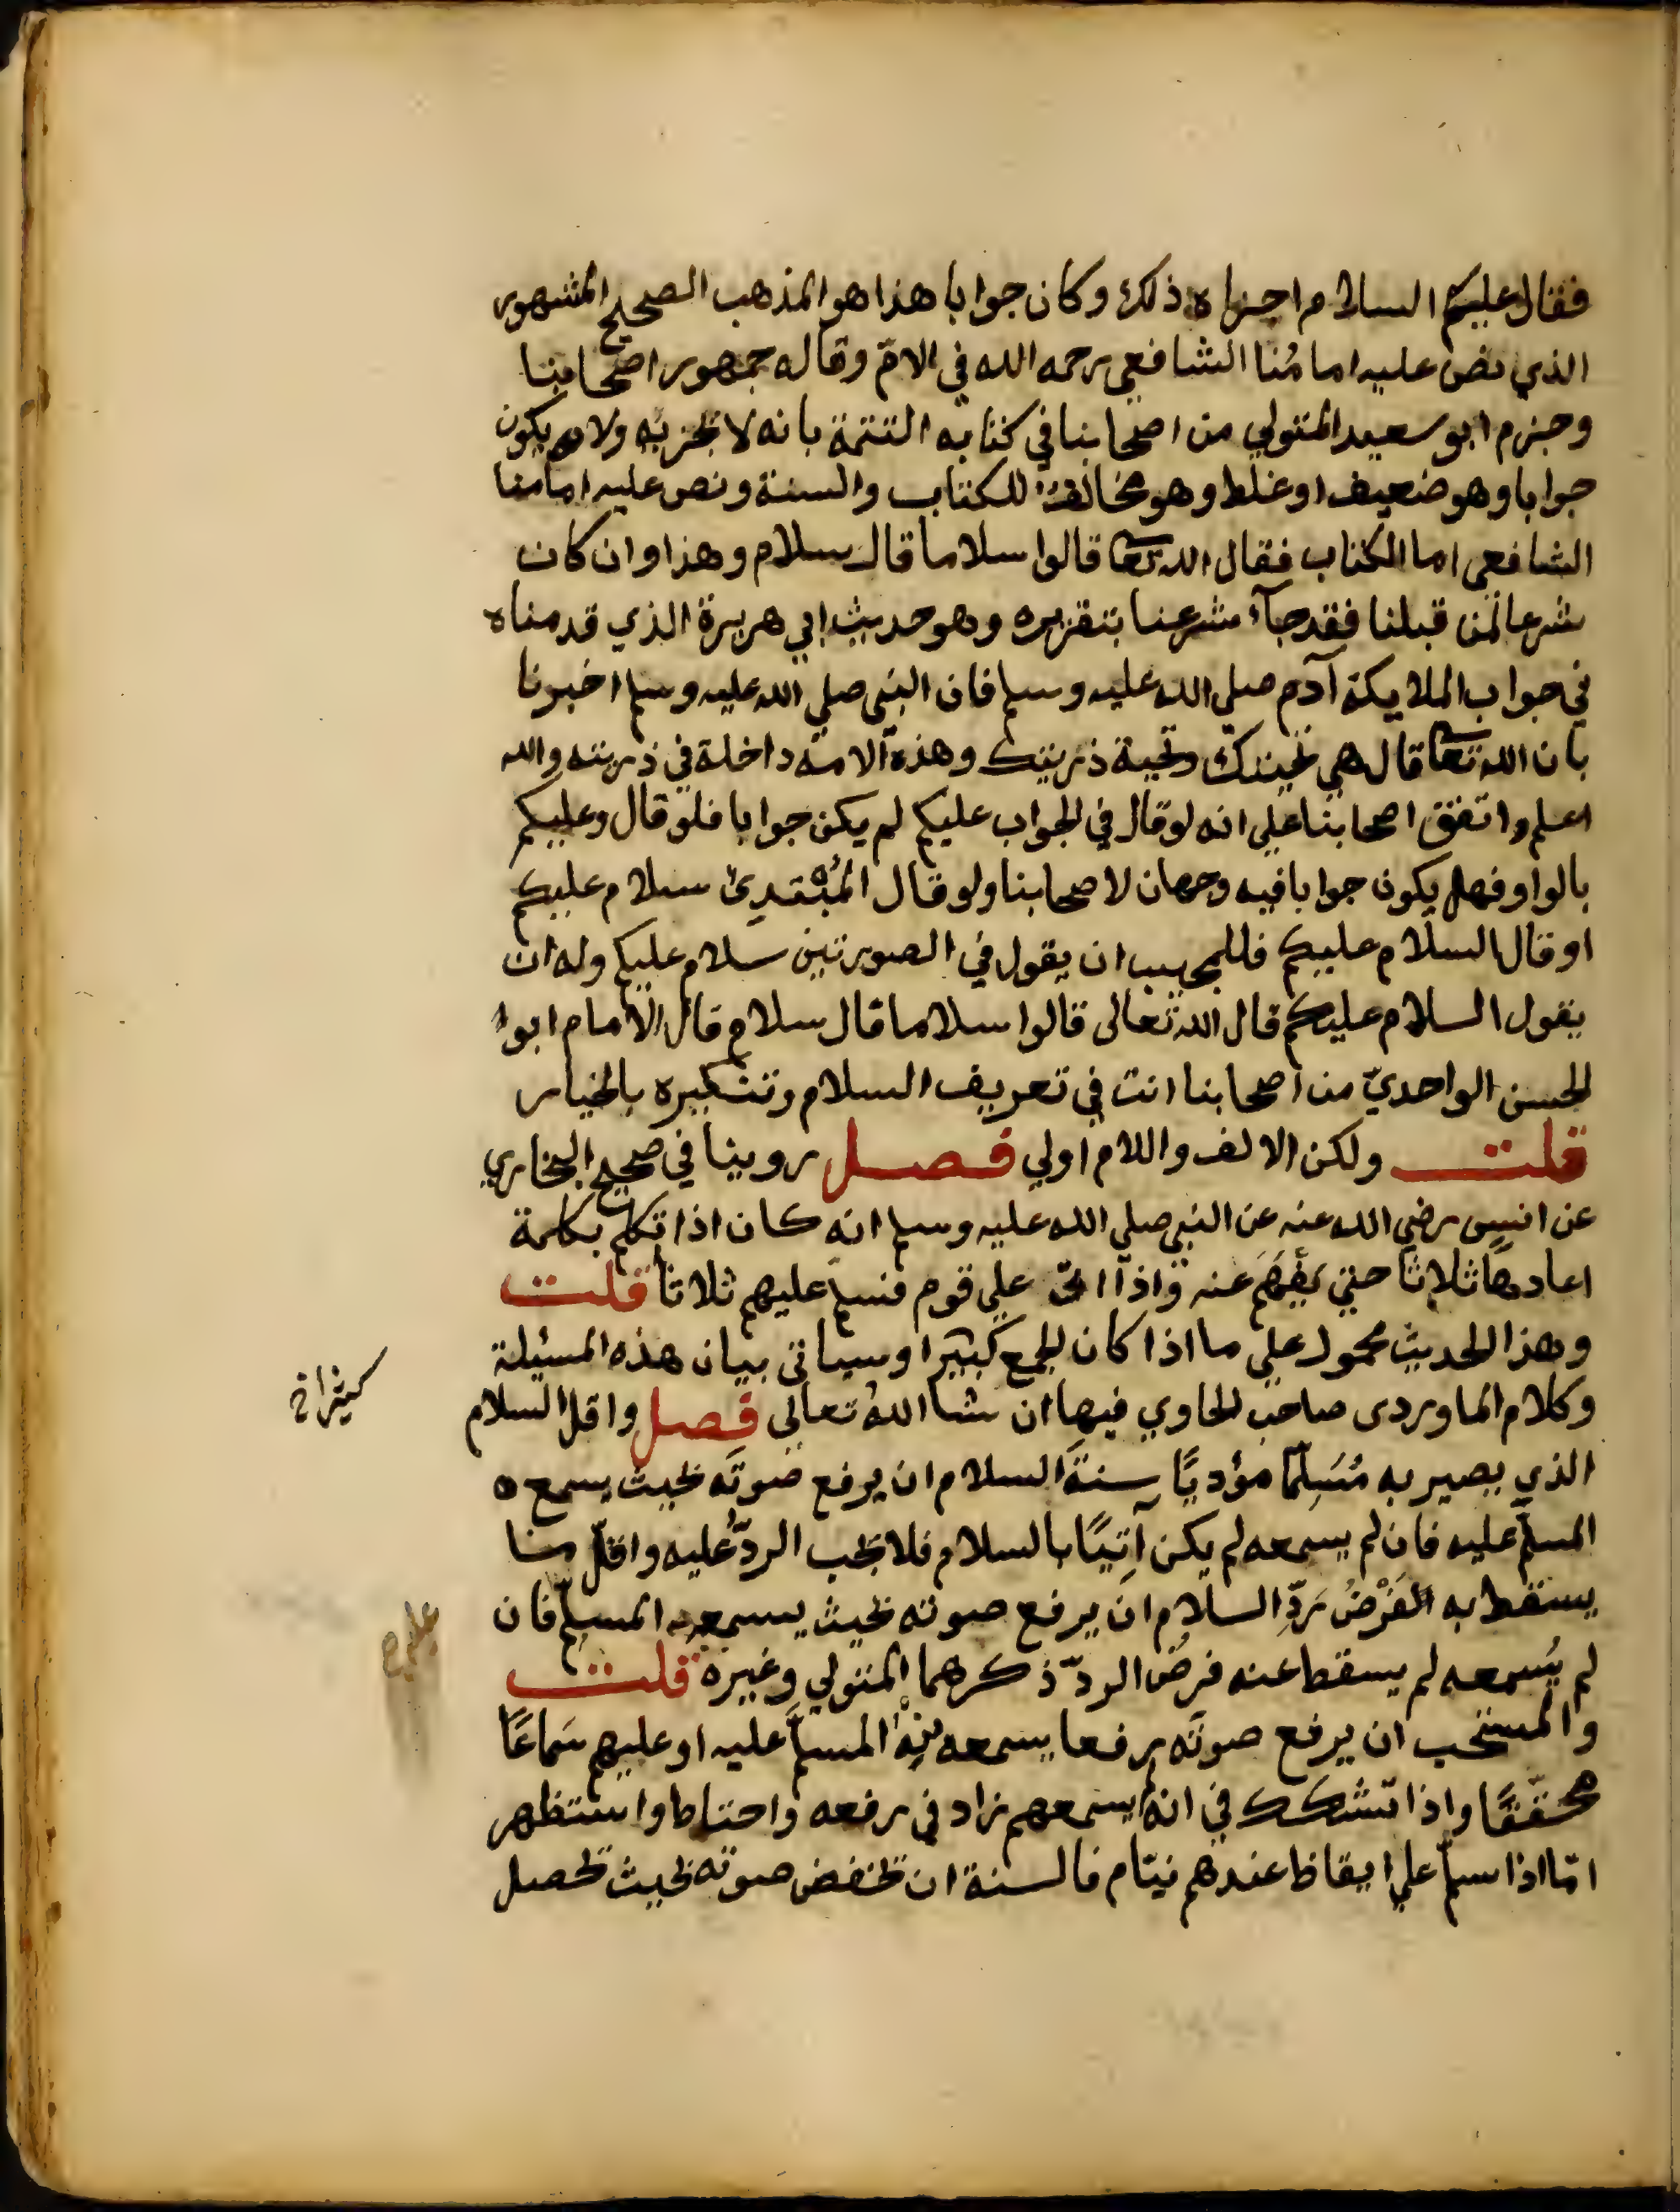 فقال عليكم السلام اجزاه ذلك وكان جوابا هذا هو المذهب الصحيح المشهور
الذي نص عليه امامُنا الشافعي رحمه الله في الامّ وقاله جمهور اصحابنا
وجزم ابو سعيد المتولي من اصحابنا في كتابه التتمة بانه لا يجزيه ولا يكون
جوابا وهو ضعيف او غلط وهو مخالف للكتاب والسنة ونص عليه امامنا
الشافعي اما الكتاب فقال الله تعا قالوا سلاما قال سلام وهذا وان كان
شرعا لمن قبلنا فقد جآء شرعنا بتقريره وهو حديث ابي هريرة الذي قدمناه
في جواب الملايكة آدم صلى الله عليه وسلم فان النبي صلي الله عليه وسلم اخبرنا
بان الله تعا قال هي تحيتك وتحية ذريتك وهذه الامة داخلة في ذريته والله
اعلم واتفق اصحابنا علي انه لو قال في الجواب عليكم لم يكن جوابا فلو قال وعليكم
بالواو فهل يكون جوابا فيه وجهان لاصحابنا ولو قال المُبْتَدِئ سلام عليكم
او قال السلام عليكم فللمجيب ان يقول في الصورتين سلام عليكم وله ان
يقول السلام عليكم قال الله تعالى قالوا سلاما قال سلام قال الامام ابوا
الحسن الواحديّ من اصحابنا انت في تعريف السلام وتنكيره بالخيار
قلت ولكن الالف واللام اولي فصل روينا في صحيح البخاري
عن انس رضي الله عنه عن النبي صلي الله عليه وسلم انه كان اذا تكلم بكلمة
اعادها ثلاثا حتي يُفهَم عنه واذا اتى علي قوم فسلم عليهم ثلاثا قلت
وهذا الحديث محمول علي ما اذا كان الجمع كبيرا وسياتي بيان هذه المسئلة
كثيرا خ
وكلام الماوردى صاحب الحاوي فيها ان شا اللهُ تعالى فصل واقل السلام
الذي يصير به مُسَلِّمًا مؤديًا سنةَ السلام ان يرفع صوتَه بحيث يسمع
المسلَّم عليه فان لم يسمعه لم يكن آتيًا بالسلام فلا يجب الردّ عليه واقلّ ما
يسقط به الفَرْضُ رَدِّ السلام ان يرفع صوته بحيث يسمعه المسلِّم فان
لم يُسمعه لم يسقط عنه فرضُ الردّ ذكرهما المتولي وغيره قلت
والمستحب ان يرفع صوتَه رفعا يسمعه به المسلَّم عليه او عليهم سَماعًا
محقّقًا واذا تشكك في انه يسمعهم زاد في رفعه واحتاط واستظهر
امّا اذا سلّم علي ايقاظ عندهم نيّام فالسنة ان يخفض صوته بحيث يحصل